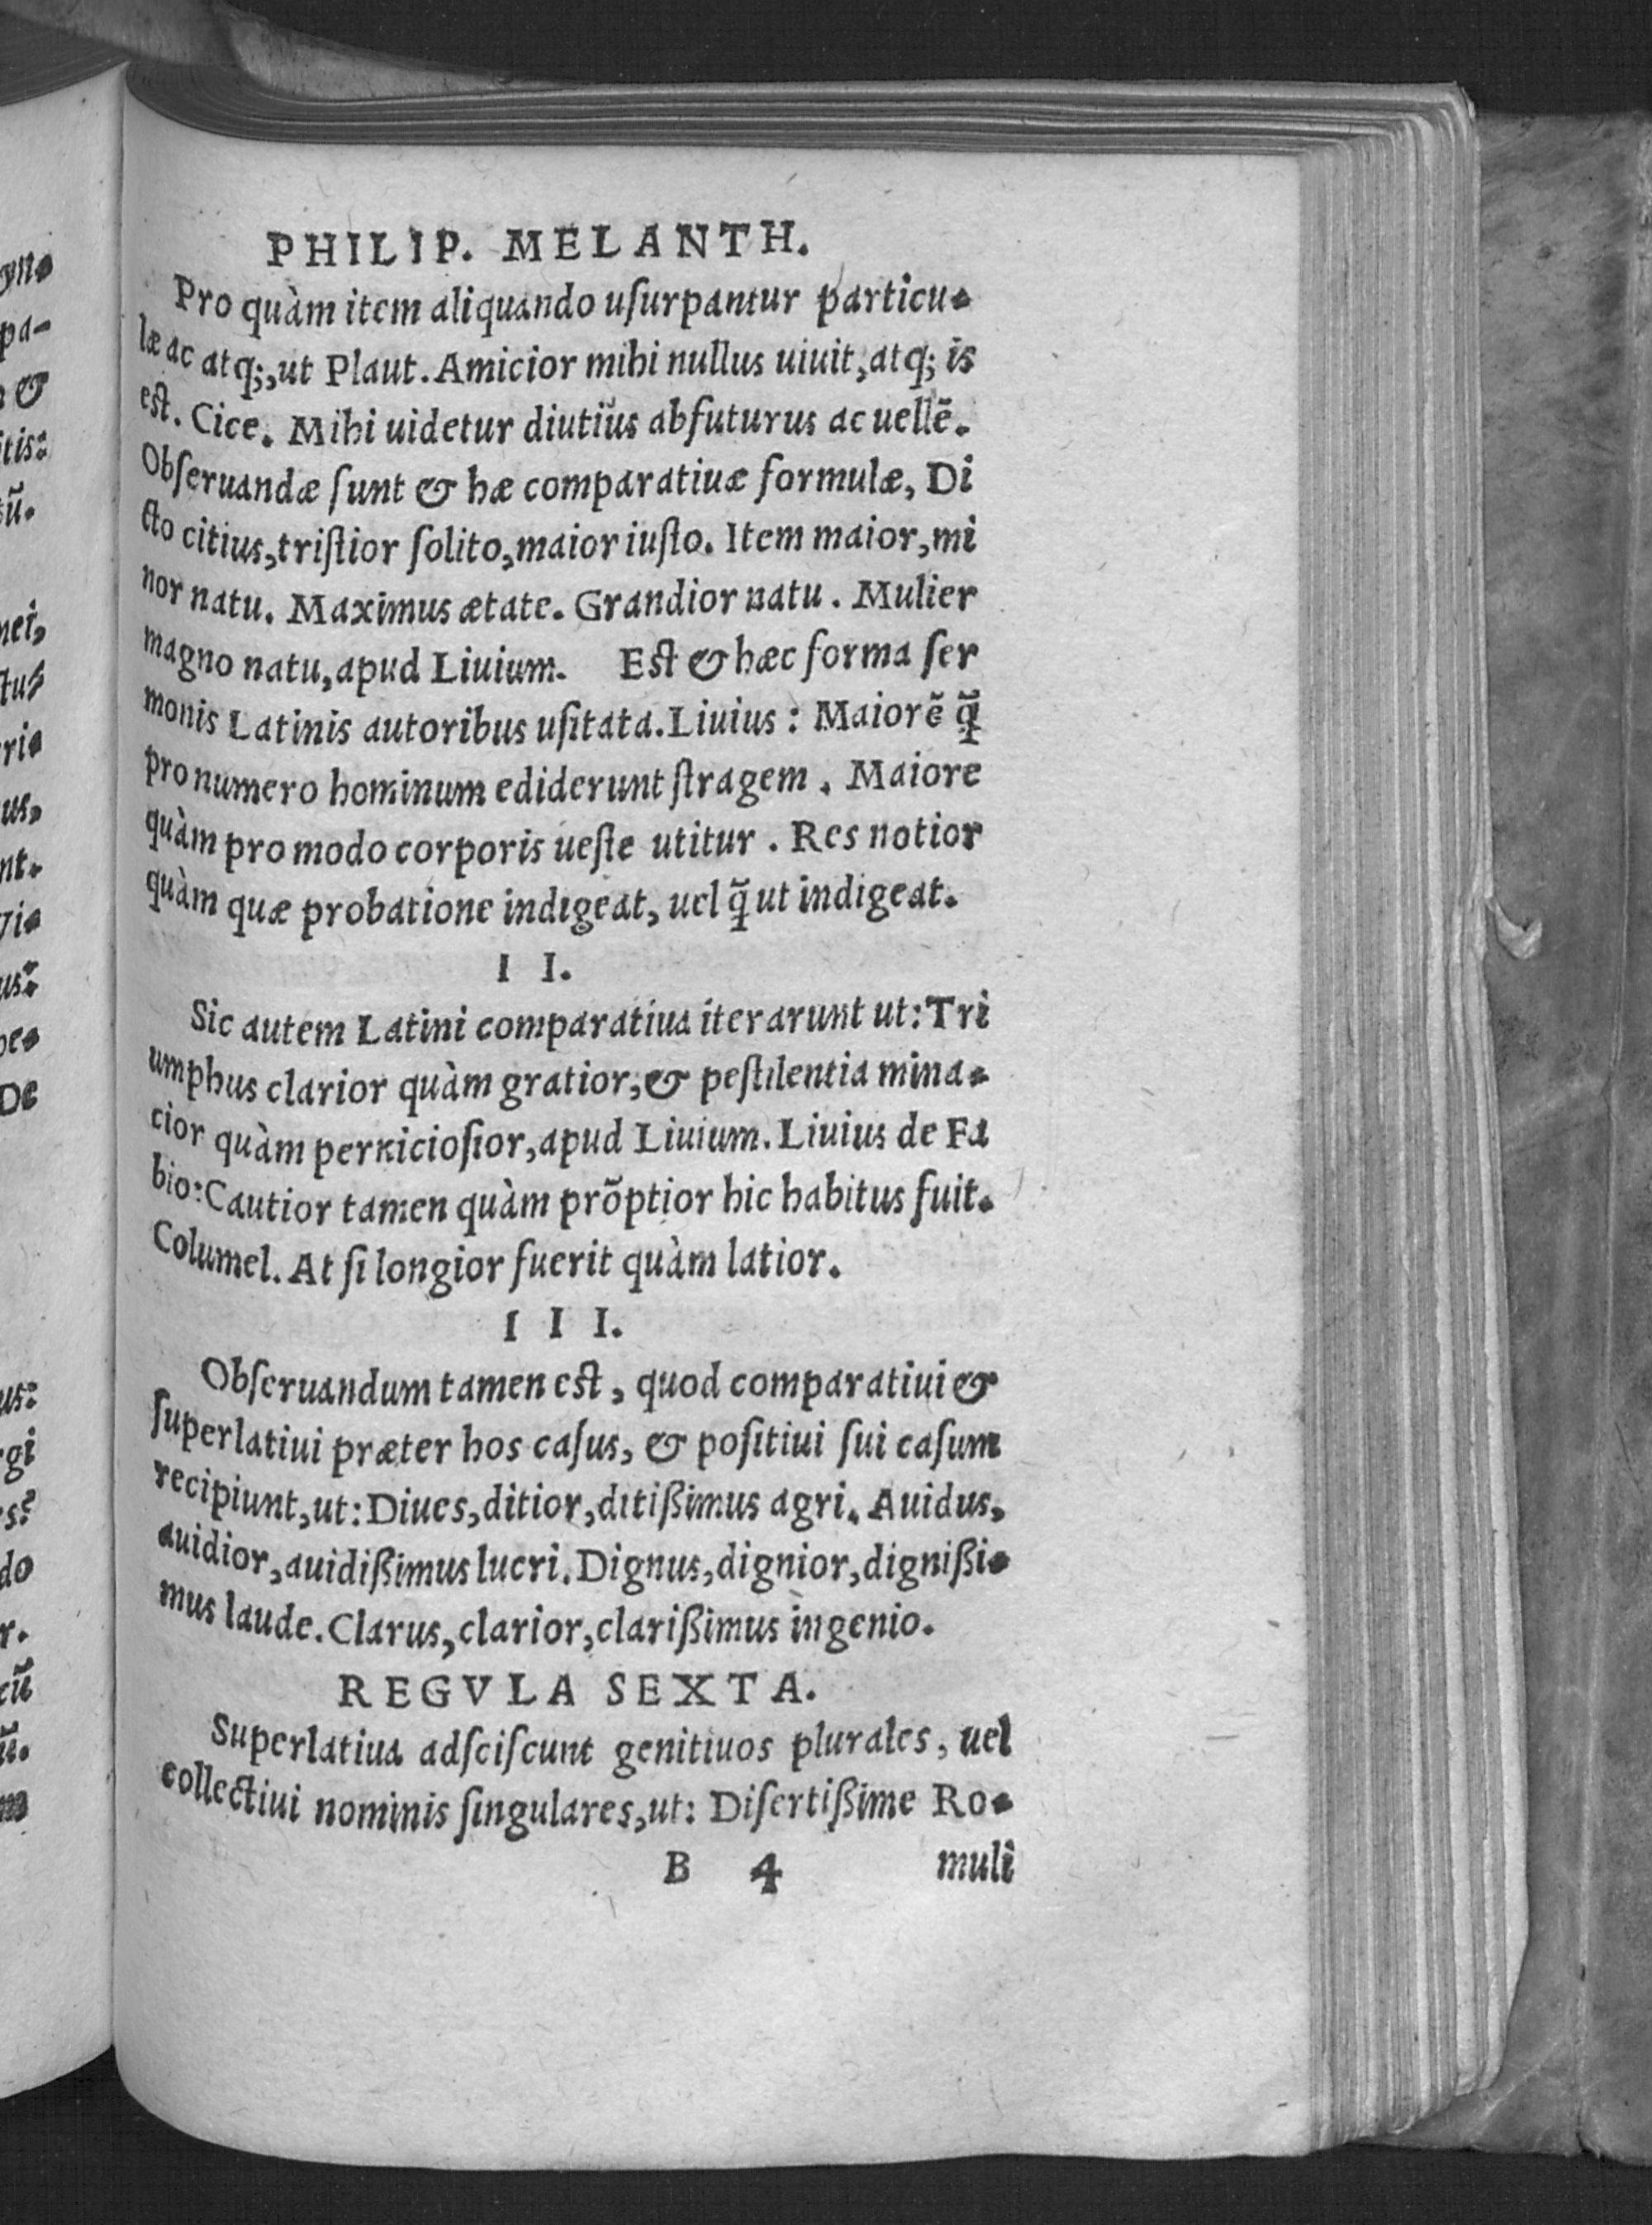 PHILIP. MELANTH.
Pro quàm item aliquando uſurpantur particu-
læ ac atq;, ut Plaut. Amicior mihi nullus uiuit, atq; is
eſt. Cice. Mihi uidetur diutius abfuturus ac uellẽ.
Obſeruandæ ſunt & hæ comparatiuæ formulæ, Di
cto citius, triſtior ſolito, maior iuſto. Item maior, mi
nor natu. Maximus ætate. Grandior natu. Mulier
magno natu, apud Liuium. Eſt & hæc forma ſer
monis Latinis autoribus uſitata. Liuius: Maiorẽ q̃
pro numero hominum ediderunt ſtragem. Maiore
quàm pro modo corporis ueſte utitur. Res notior
quàm quæ probatione indigeat, uel q̃ ut indigeat.
I I.
Sic autem Latini comparatiua iterarunt ut: Tri
umphus clarior quàm gratior, & peſtilentia mina-
cior quàm pernicioſior, apud Liuium. Liuius de Fa
bio: Cautior tamen quàm prõptior hic habitus fuit.
Columel. At ſi longior fuerit quàm latior.
I I I.
Obſeruandum tamen eſt, quod comparatiui &
ſuperlatiui præter hos caſus, & poſitiui ſui caſum
recipiunt, ut: Diues, ditior, ditißimus agri. Auidus,
auidior, auidißimus lucri. Dignus, dignior, dignißi-
mus laude. Clarus, clarior, clarißimus ingenio.
REGVLA SEXTA.
Superlatiua adſciſcunt genitiuos plurales, uel
collectiui nominis ſingulares, ut: Diſertißime Ro-
B 4 muli